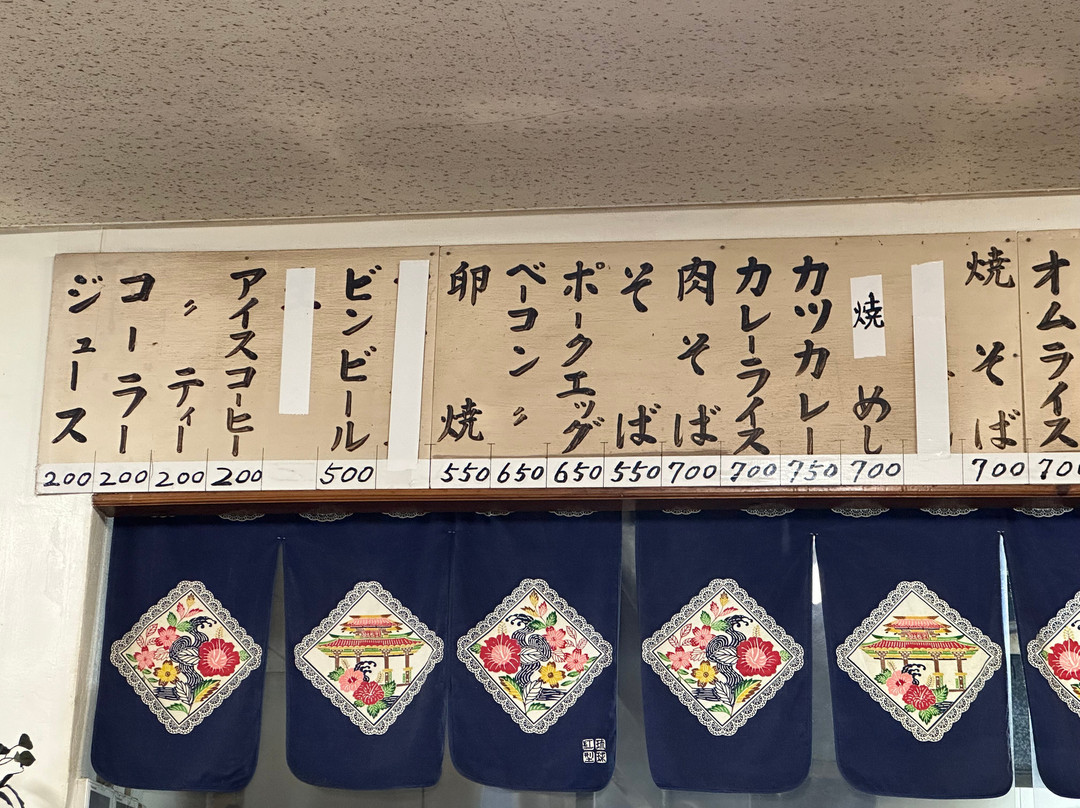 オムライス
700
焼そば
700
焼めし
700
カツカレー
750
カレーライス
700
肉そば
700
そば
550
ポークエッグ
650
ベーコン〃
650
卵焼
550
ビンビール
500
アイスコーヒー
200
〃ティー
200
コーラー
200
ジュース
200
琉球
紅型